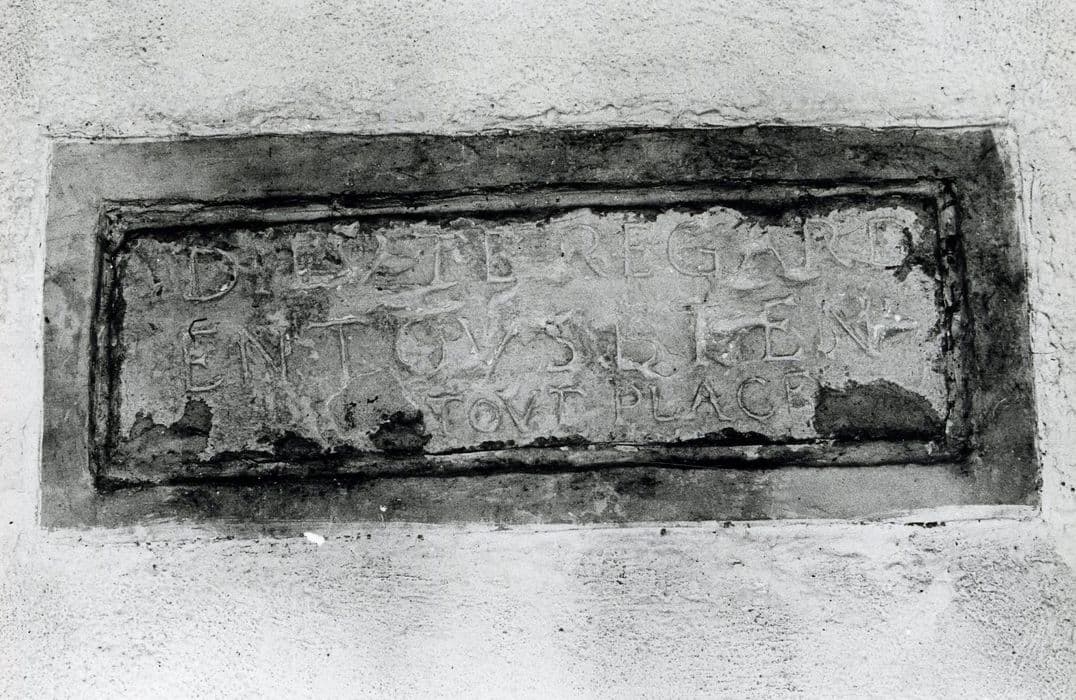 DIEV TE REGARDE
EN TOVS LIEN
TOVT PLACE